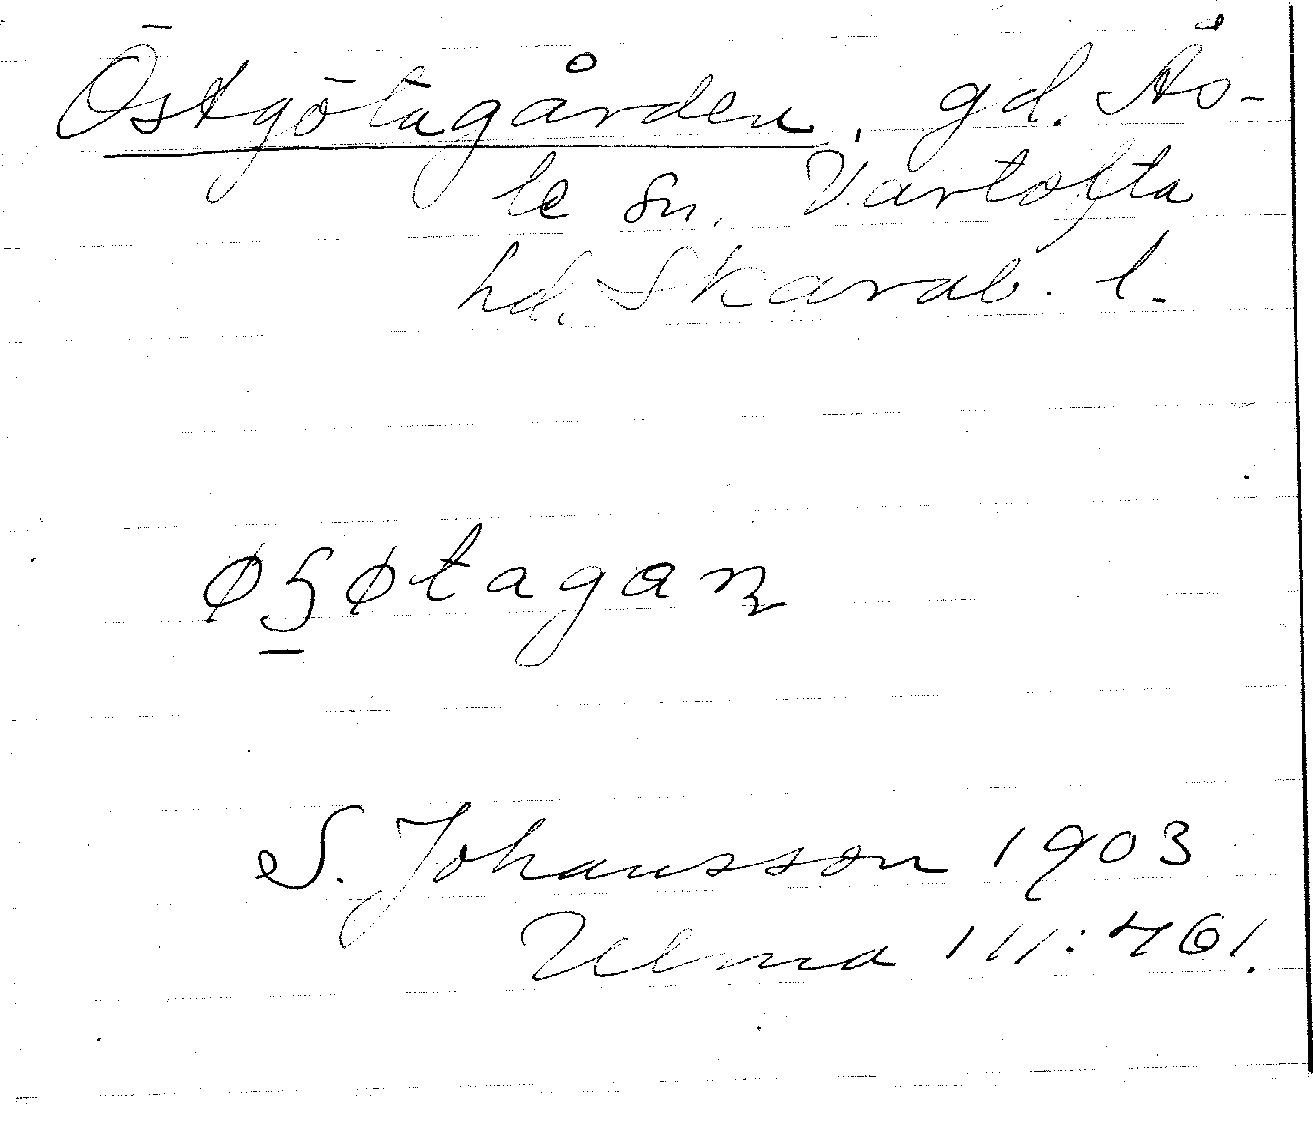 Östgötagården, gd. Ås-
le sn. Vartofta
hd. Skarab. l.
øʂøtagaɳ
S. Johansson 1903
Ulma 111:461.